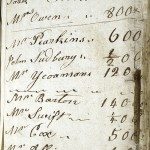 Mr Owen 800
Mr Perkins 600
John Sudbury ½ 200
Mr Yeomans 1200
Mr Barton 140
Mr Swift 40
Mr Cox 50
Mr